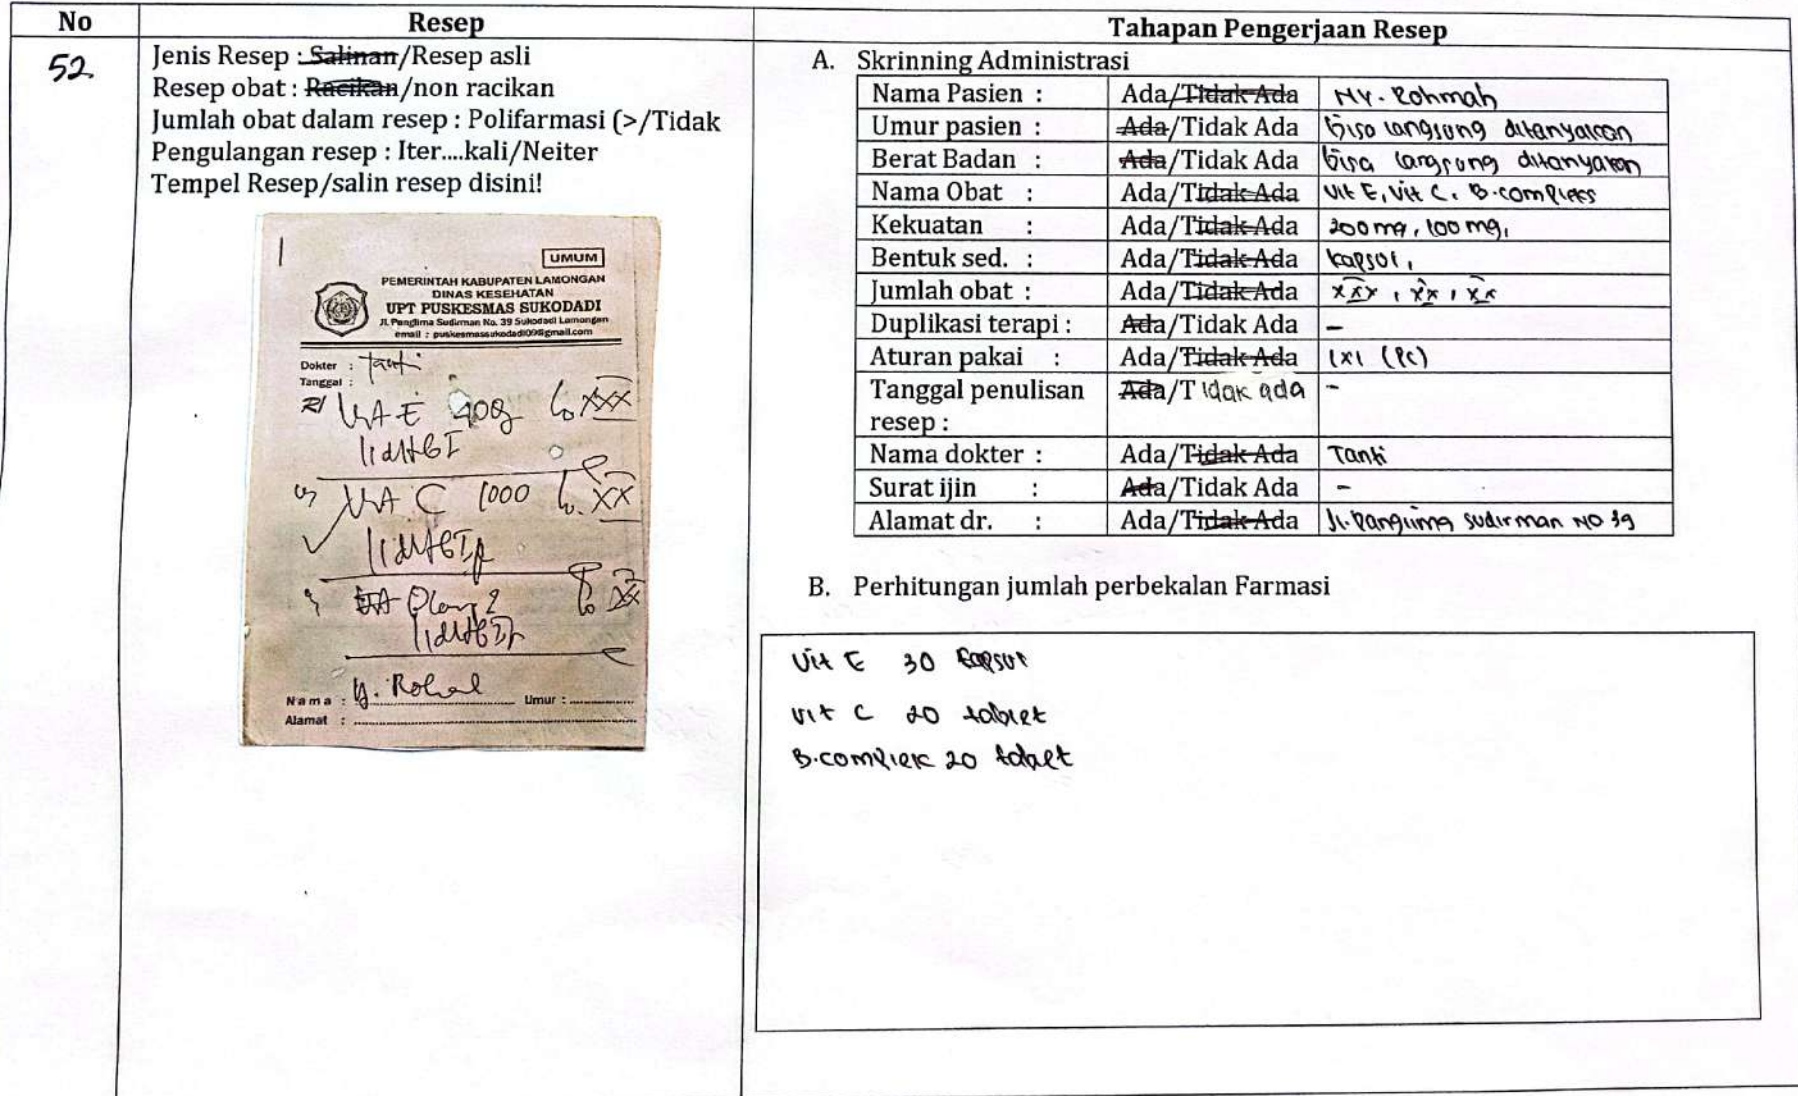 No
Resep
Tahapan Pengerjaan Resep
52
Jenis Resep : Salinan/Resep asli
Resep obat : Racikan/non racikan
Jumlah obat dalam resep : Polifarmasi (>/Tidak
Pengulangan resep : Iter....kali/Neiter
Tempel Resep/salin resep disini!
UMUM
PEMERINTAH KABUPATEN LAMONGAN
DINAS KESEHATAN
UPT PUSKESMAS SUKODADI
Jl. Panglima Sudirman No. 39 Sukodadi Lamongan
email : puskesmassukodadi09@gmail.com
Dokter : Tanti
Tanggal :
R/ Vit E XXX
Vit C 1000 XX
XX
Nama : Umur :
Alamat :
A. Skrinning Administrasi
Nama Pasien : Ada/Tidak Ada Ny. Rohmah
Umur pasien : Ada/Tidak Ada bisa langsung ditanyakan
Berat Badan : Ada/Tidak Ada bisa langsung ditanyakan
Nama Obat : Ada/Tidak Ada Vit E, Vit C, B.compleks
Kekuatan : Ada/Tidak Ada 200 mg, 100 mg,
Bentuk sed. : Ada/Tidak Ada kapsul,
Jumlah obat : Ada/Tidak Ada xxx, xx, xx
Duplikasi terapi : Ada/Tidak Ada -
Aturan pakai : Ada/Tidak Ada 1x1 (PC)
Tanggal penulisan Ada/Tidak ada -
resep :
Nama dokter : Ada/Tidak Ada Tanti
Surat ijin : Ada/Tidak Ada -
Alamat dr. : Ada/Tidak Ada Jl. Panglima sudirman NO 39
B. Perhitungan jumlah perbekalan Farmasi
Vit E 30 kapsul
Vit C 20 tablet
B.complek 20 tablet